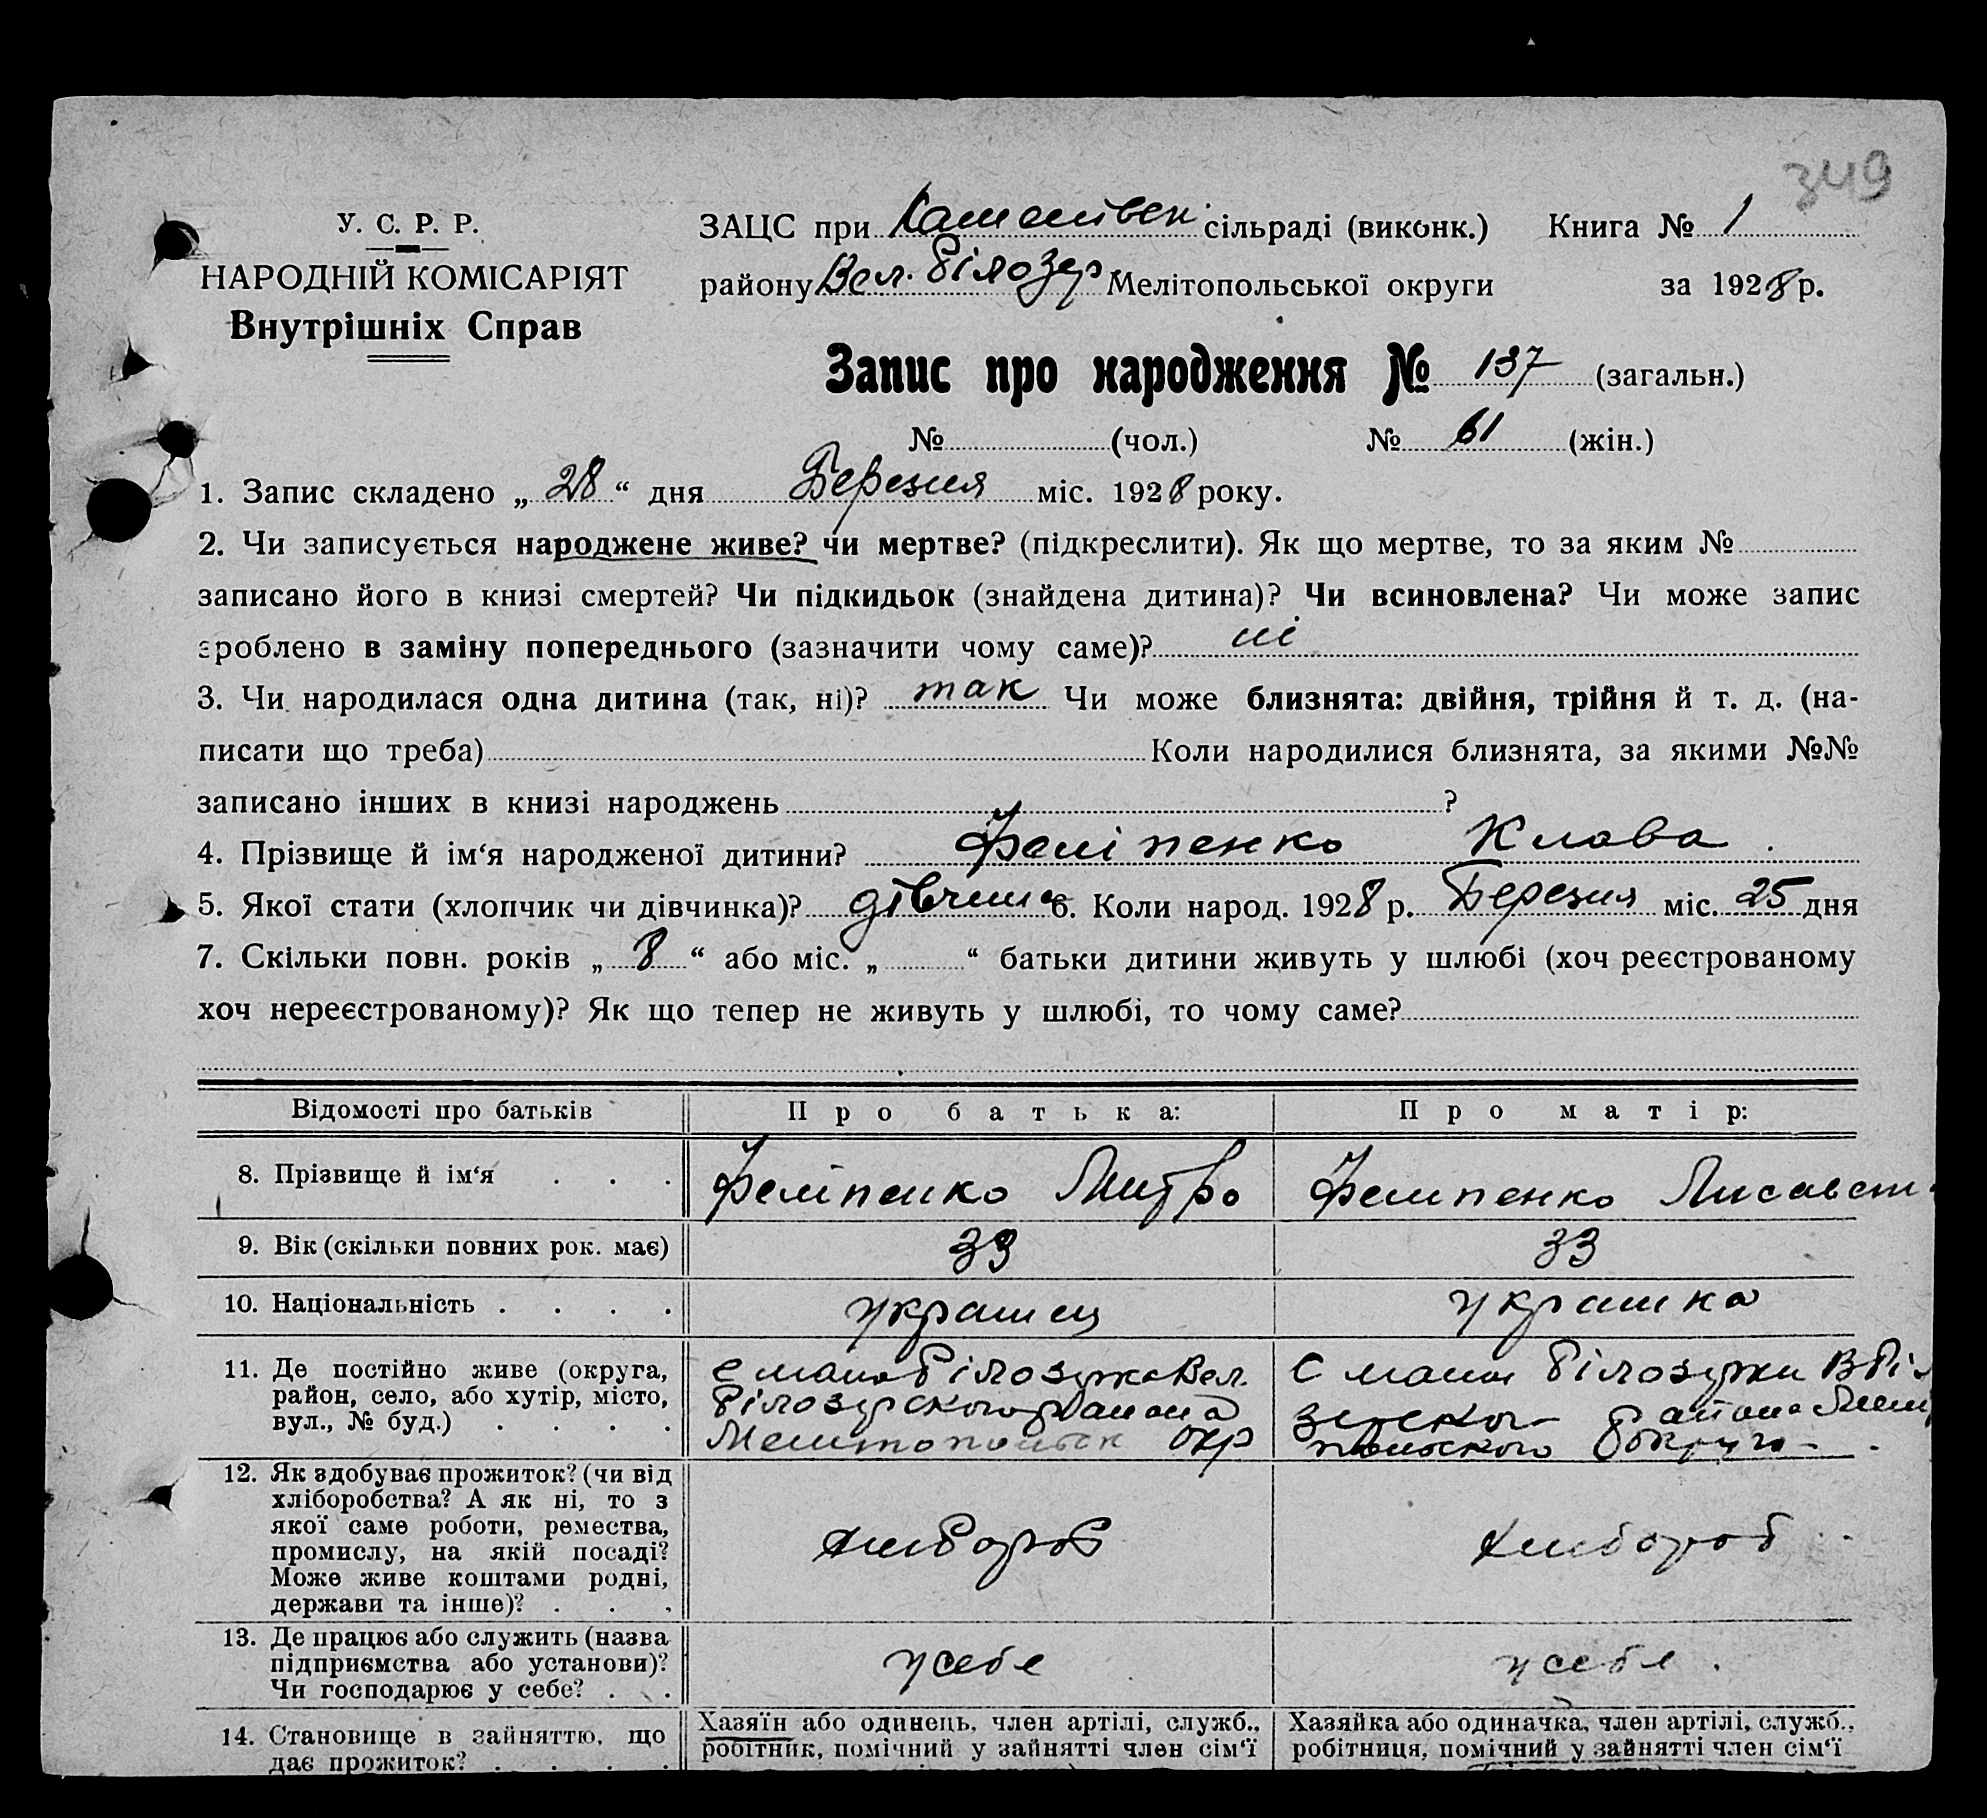 349
У. С. Р. Р.
НАРОДНІЙ КОМІСАРІЯТ
Внутрішніх Справ
ЗАЦС при сільраді (виконк.) Книга № 1
району Вел. Білозер. Мелітопольської округи за 1928 р.
Запис про народження № 137 (загальн.)
№ (чол.) № 61 (жін.)
1. Запис складено „ 28 “ дня Березня міс. 1928 року.
2. Чи записується народжене живе? чи мертве? (підкреслити). Як що мертве, то за яким №
записано його в книзі смертей? Чи підкидьок (знайдена дитина)? Чи всиновлена? Чи може запис
зроблено в заміну попереднього (зазначити чому саме)? ні
3. Чи народилася одна дитина (так, ні)? так Чи може близнята: двійня, трійня й т. д. (на-
писати що треба) Коли народилися близнята, за якими №№
записано інших в книзі народжень ?
4. Прізвище й ім‘я народженої дитини? Феліпенко Клава.
5. Якої стати (хлопчик чи дівчинка)? дівчина 6. Коли народ. 1928 р. Березня міс. 25 дня
7. Скільки повн. років „ 8 “ або міс. „ “ батьки дитини живуть у шлюбі (хоч реєстрованому
хоч нереєстрованому)? Як що тепер не живуть у шлюбі, то чому саме?
Відомості про батьків Про батька: Про матір:
8. Прізвище й ім‘я Феліпенко Митро Феліпенко Лисавет
9. Вік (скільки повних рок. має) 33 33
10. Національність украинец украинка
11. Де постійно живе (округа,
район, село, або хутір, місто,
вул., № буд.)
с мала Білозерка Вел.
Білозерского района
Мелитопольск окр
С малои Білозерки В Біл
зерского района Мелит
польского округа
12. Як здобуває прожиток? (чи від
хліборобства? А як ні, то з
якої саме роботи, ремества,
промислу, на якій посаді?
Може живе коштами родні,
держави та інше)?
хлибороб хлибороб
13. Де працює або служить (назва
підприємства або установи)?
Чи господарює у себе?
у себе у себе.
14. Становище в зайняттю, що
дає прожиток?
Хазяїн або одинець, член артілі, служб.,
робітник, помічний у зайнятті член сім‘ї
Хазяйка або одиначка, член артілі, служб.,
робітниця, помічний у зайнятті член сім‘ї